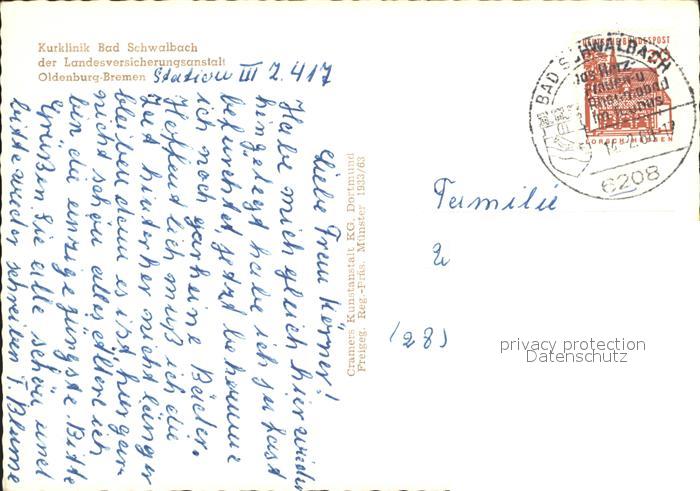 Kurklinik Bad Schwalbach
der Landesversicherungsanstalt
Oldenburg-Bremen Station III Z. 417
Liebe Frau Körner!
Habe mich gleich hier wieder
hingelegt habe ich ja fast
befürchtet, jetzt bekomme
ich noch gar keine Bäder.
Hoffentlich muß ich die
Zeit hinterher nicht länger
bleiben denn es ist hier gar
nicht schön alles ältere ich
bin die einzige jüngste. Bitte
Grüßen Sie alle schön und
bitte wieder schreiben I. Blume
Cramers Kunstanstalt KG. Dortmund
Freigeg. Reg.-Präs. Münster 1933/63
DEUTSCHE BUNDESPOST
LORSCH/HESSEN
BAD SCHWALBACH
das Herz-
Frauen-u
im Taunus
6208
Familie
(28)
privacy protection
Datenschutz